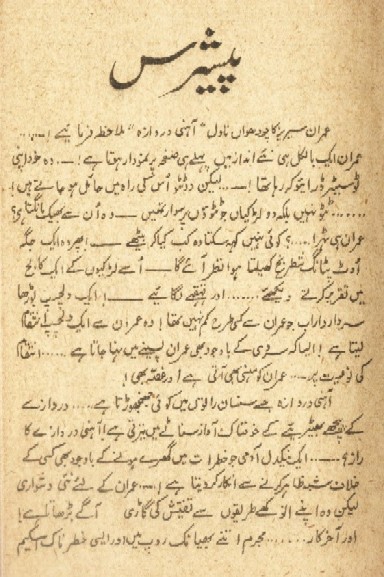 پیشرس
عمران سیریز کا چودھواں ناول "آہنی دروازہ" ملاحظہ فرمائیے!.....
عمران ایک بالکل ہی نئے انداز میں پہلے ہی صفحہ پر نمودار ہوتا ہے! — وہ خود اپنی
ٹوسیٹر ڈرائیو کر رہا تھا! —.... لیکن دو ٹٹو اس کی راہ میں حائل ہو جاتے ہیں!
...... ٹٹو نہیں بلکہ وہ لڑکیاں جو ٹٹوؤں پر سوار تھیں — وہ اُن سے بھیک مانگتا ہے؟
عمران ہی ٹہرا.....؟ کوئی نہیں کہہ سکتا وہ کب کیا کر بیٹھے — ! پھر وہ ایک جگہ
آؤٹ پٹانگ شطرنج کھیلتا ہوا نظر آئے گا — اُسے لڑکیوں کے ایک کالج
میں تقریر کرتے دیکھئے....... اور قہقہے لگائیے —! ایک دلچسپ بوڑھا
سردار داراب جو عمران سے کسی طرح کم نہیں تھا! وہ عمران سے ایک دلچسپ انتقام
لیتا ہے! ایسا کہ سردی کے باوجود بھی عمران پسینے میں نہا جاتا ہے..... انتقام
کی نوعیت پر.... عمران کو ہنسی بھی آتی ہے اور غصہ بھی!
آہنی دروازہ جسے سنسان راتوں میں کوئی جھنجھوڑتا ہے.... دروازے
کے پیچھے بھیڑیے کی خوفناک آواز سناٹے میں تیرتی ہے! آہنی دروازے کا
راز؟..... ایک نیکدل آدمی جو خطرات میں گھرے ہونے کے باوجود بھی کسی کے
خلاف شبہ ظاہر کرنے سے انکار کر دیتا ہے!.... عمران کے لئے نئی دشواری
لیکن وہ اپنے انوکھے طریقوں سے تفتیش کی گاڑی آگے بڑھاتا ہے!
اور آخر کار....... مجرم اتنے بھیانک روپ میں اور ایسی خطرناک اسکیم